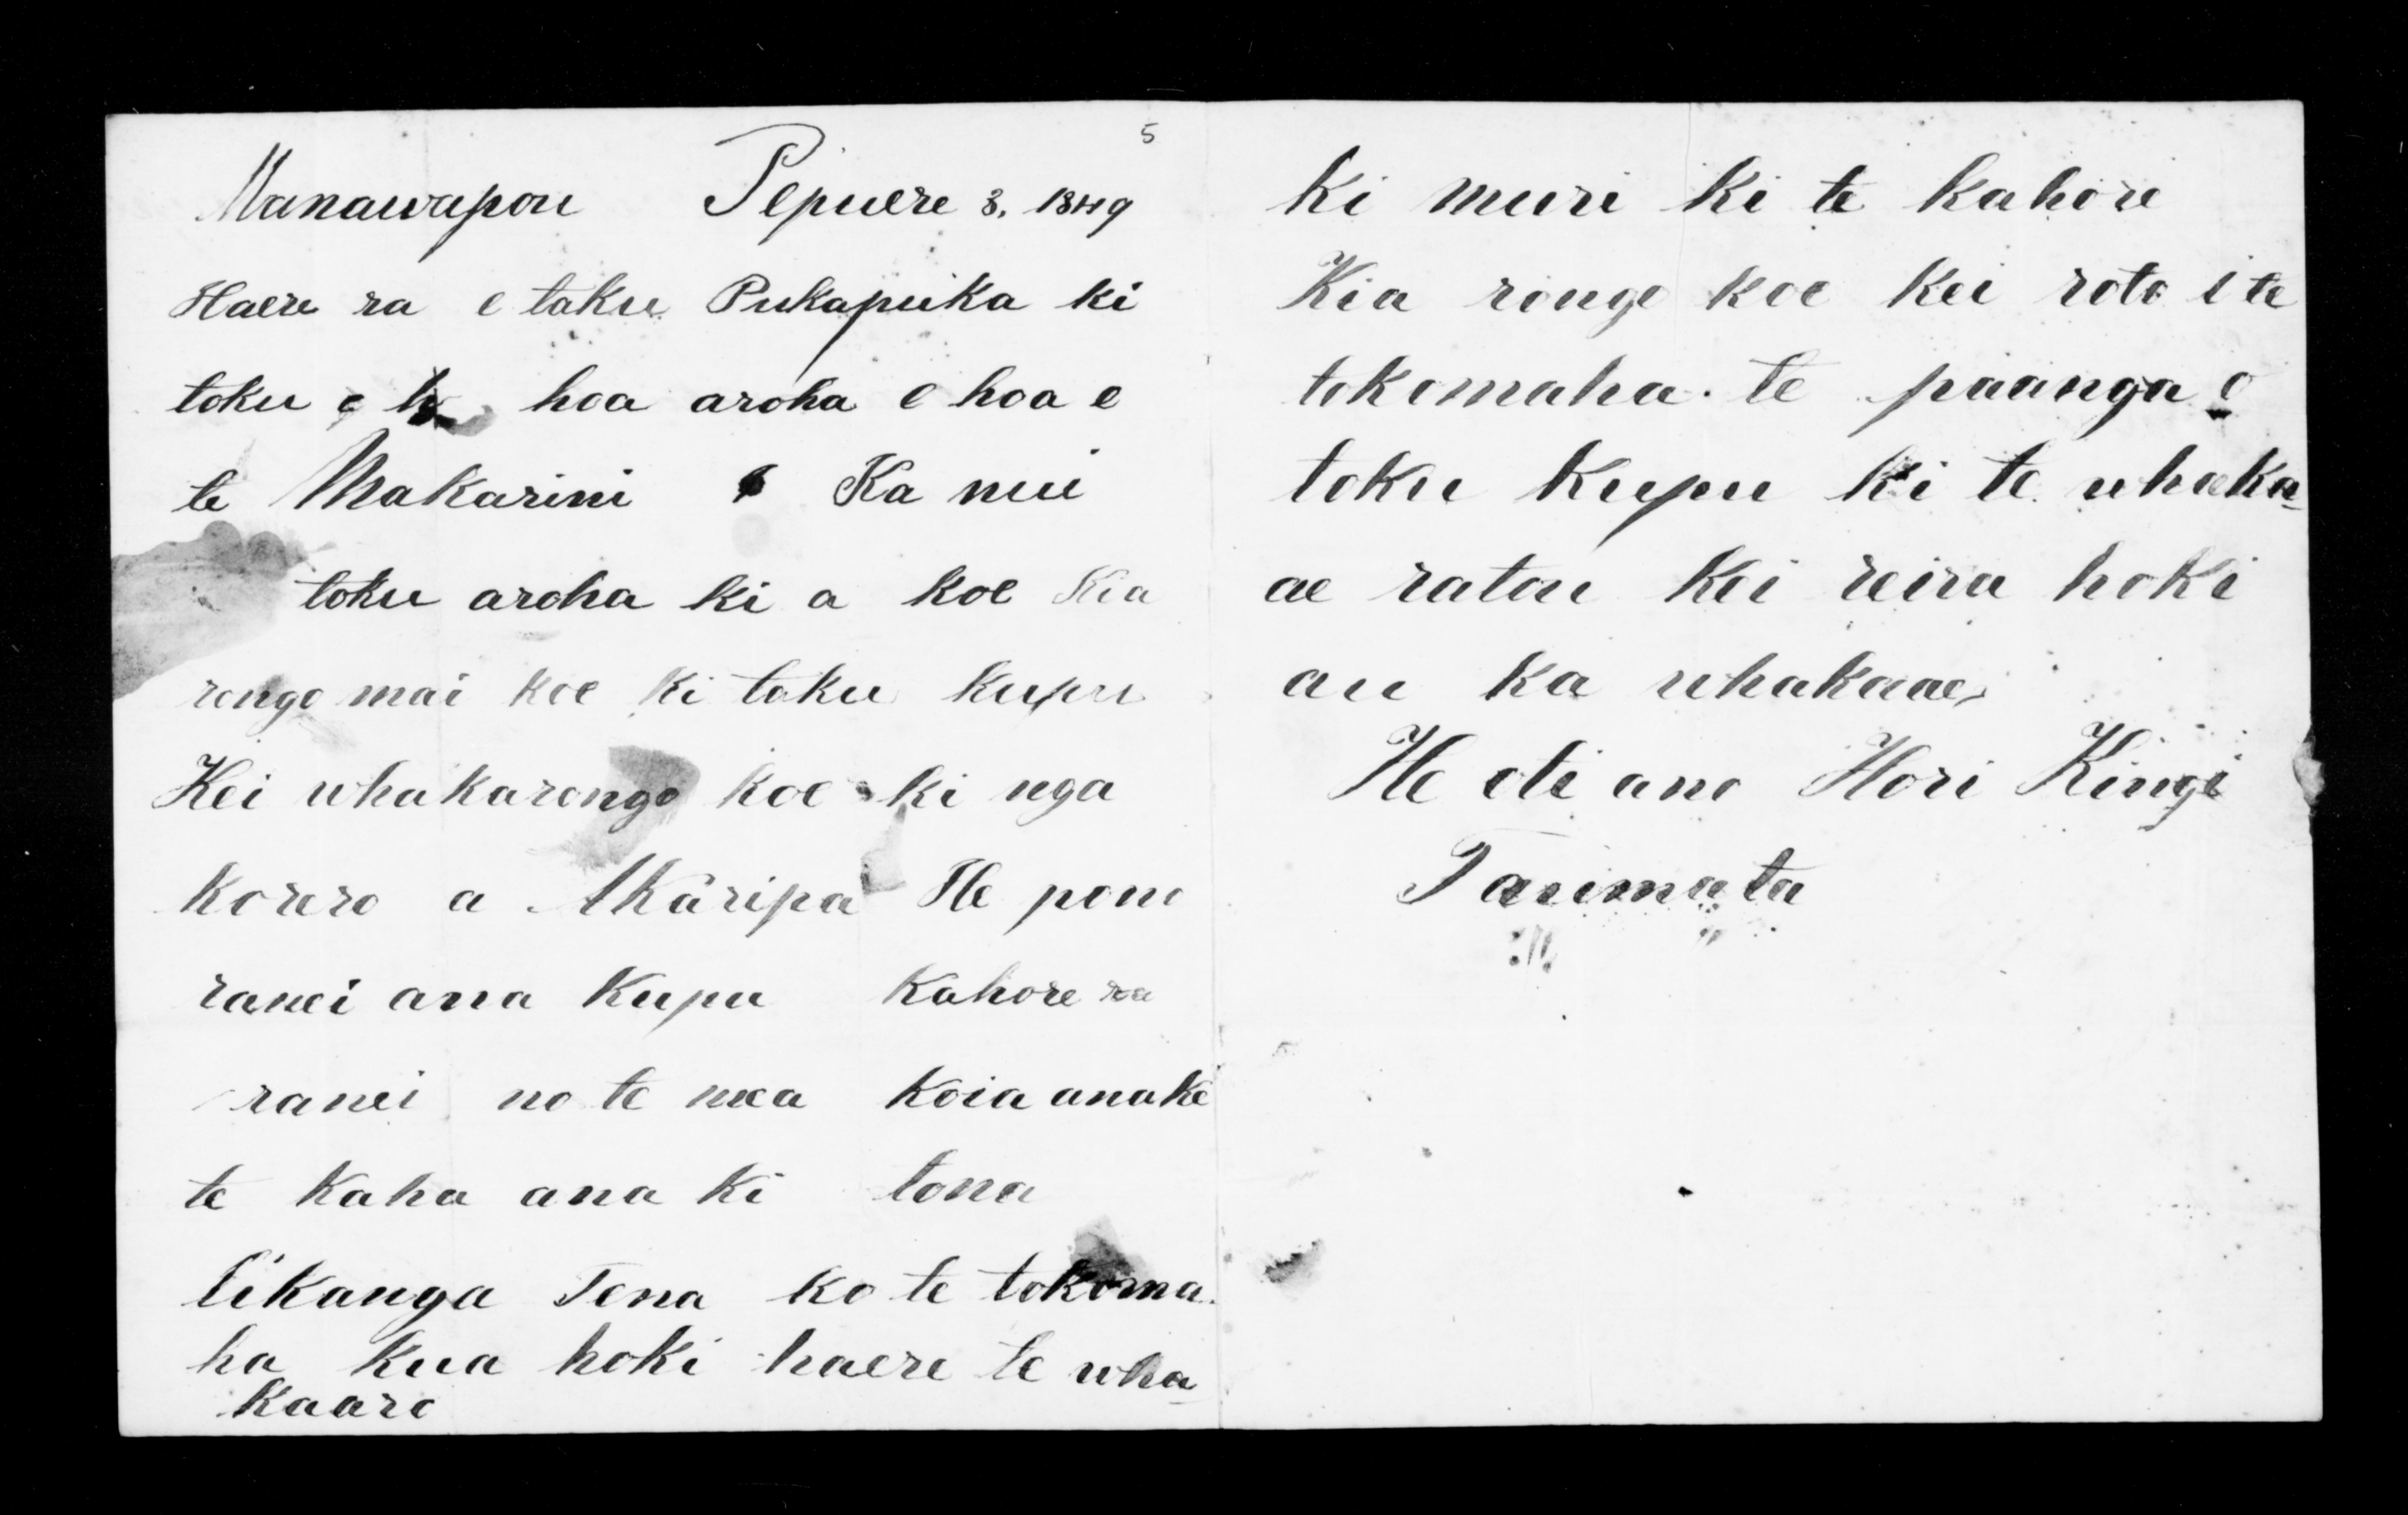 5
Manawapou Pepuere 3. 1849
Haere ra e taku Pukapuka ki
toku hoa aroha e hoa e
te Makarini Ka nui
toku aroha ki a koe Kia
rongo mai koe ki taku kupu
Kei whakarongo koe ki nga
korero a Akaripa He pono
ranei ana kupu kahore ra
ranei no te mea koia anake
te kaha ana ki tona
tikanga Tena ko te tokoma
ha kua hoki haere te wha-
kaaro
ki muri ki te kahore
Kia rongo koe kei roto i te
tokomaha. te paanga o
toku kupu ki te whaka-
ae ratou kei reira hoki
au ka whakaae,
He oti ano Hori Kingi
Taumata